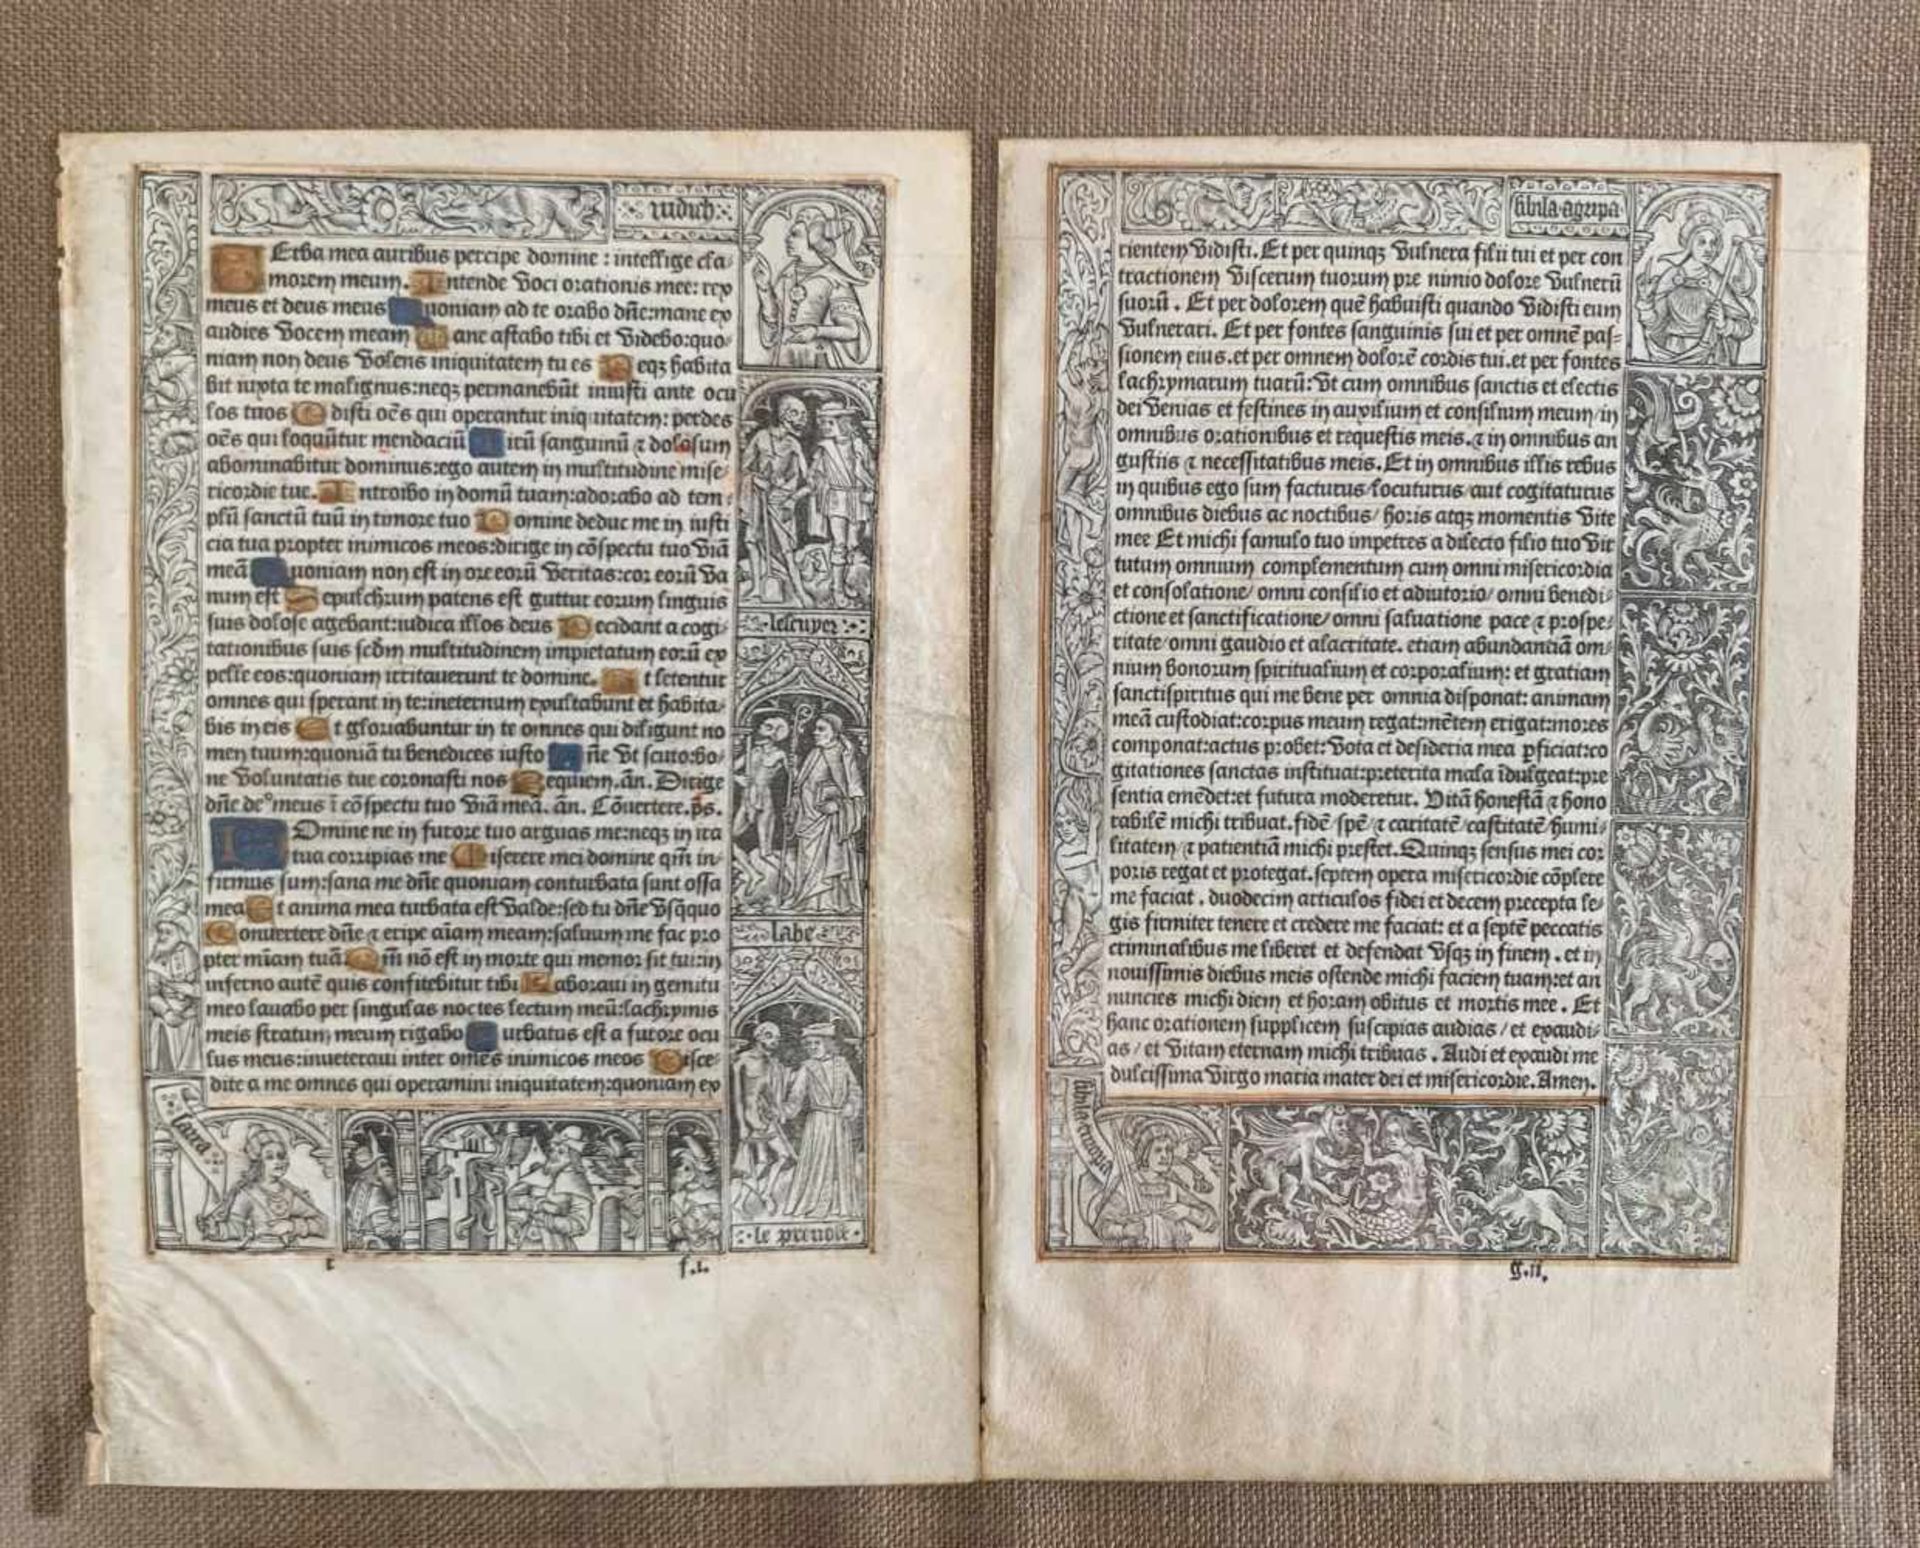 iudich
Verba mea auribus percipe domine : intellige cla-
morem meum. Intende voci orationis mee: rex
meus et deus meus Quoniam ad te orabo dñe:mane ex
audies vocem meam Mane astabo tibi et videbo:quo-
niam non deus volens iniquitatem tu es Neqꝫ habita
bit iuxta te malignus:neqꝫ permanebūt iniusti ante ocu
los tuos Odisti oēs qui operantur iniquitatem: perdes
oēs qui loquūtur mendaciū Virū sanguinū ⁊ dolosum
abominabitur dominus:ego autem in multitudine mise-
ricordie tue. Introibo in domū tuam:adorabo ad tem-
plū sanctū tuū in timore tuo Domine deduc me in iusti
cia tua propter inimicos meos:dirige in cōspectu tuo viā
meā Quoniam non est in ore eorū veritas:cor eorū va
num est Sepulchrum patens est guttur eorum linguis
suis dolose agebant:iudica illos deus Decidant a cogi-
tationibus suis scd̄m multitudinem impietatum eorū ex
pelle eos:quoniam irritauerunt te domine. Et letentur
omnes qui sperant in te:ineternum exultabunt et habita-
bis in eis Et gloriabuntur in te omnes qui diligunt no
men tuum:quoniā tu benedices iusto Dñe vt scuto:bo-
ne voluntatis tue coronasti nos Requiem.añ. Dirige
dñe de⁹ meus ī cōspectu tuo viā meā. añ. Cōuertere. ps̄.
Domine ne in furore tuo arguas me:neqꝫ in ira
tua corripias me Miserere mei domine qm̄ in-
firmus sum:sana me dñe quoniam conturbata sunt ossa
mea Et anima mea turbata est valde:sed tu dñe vsq̄quo
Conuertere dñe ⁊ eripe aīam meam:saluum me fac pro
pter mīam tuā Qm̄ nō est in morte qui memor sit tui:in
inferno autē quis confitebitur tibi Laboraui in gemitu
meo lauabo per singulas noctes lectum meū:lachrymis
meis stratum meum rigabo Turbatus est a furore ocu
lus meus:inueteraui inter omēs inimicos meos Disce-
dite a me omnes qui operamini iniquitatem:quoniam ex
lescuyer
labe
le preuost
f.i.
sibila agripa
rientem vidisti. Et per quinqꝫ vulnera filii tui et per con
tractionem viscerum tuorum pre nimio dolore vulnerū
suorū . Et per dolorem quē habuisti quando vidisti eum
vulnerari. Et per fontes sanguinis sui et per omnē pas-
sionem eius.et per omnem dolorē cordis tui.et per fontes
lachrymarum tuarū: vt cum omnibus sanctis et electis
dei venias et festines in auxilium et consilium meum/in
omnibus orationibus et requestis meis.⁊ in omnibus an
gustiis ⁊ necessitatibus meis. Et in omnibus illis rebus
in quibus ego sum facturus/locuturus/aut cogitaturus
omnibus diebus ac noctibus/ horis atqꝫ momentis vite
mee Et michi famulo tuo impetres a dilecto filio tuo vir
tutum omnium complementum cum omni misericordia
et consolatione/ omni consilio et adiutorio/ omni benedi-
ctione et sanctificatione/ omni saluatione pace ⁊ prospe-
ritate/ omni gaudio et alacritate. etiam abundantiā om-
nium bonorum spiritualium et corporalium: et gratiam
sanctispiritus qui me bene per omnia disponat: animam
meā custodiat:corpus meum regat:mētem erigat:mores
componat:actus probet: vota et desideria mea ꝑficiat:co
gitationes sanctas instituat:preterita mala īdulgeat:pre
sentia emēdet:et futura moderetur. Vitā honestā ⁊ hono
rabilē michi tribuat.fidē/spē/⁊ caritatē/castitatē/humi-
litatem/⁊ patientiā michi prestet. Quinqꝫ sensus mei cor
poris regat et protegat.septem opera misericordie cōplere
me faciat . duodecim articulos fidei et decem precepta le-
gis firmiter tenere et credere me faciat: et a septē peccatis
criminalibus me liberet et defendat vsqꝫ in finem . et in
nouissimis diebus meis ostende michi faciem tuam:et an
nuncies michi diem et horam obitus et mortis mee . Et
hanc orationem supplicem suscipias audias / et exaudi-
as / et vitam eternam michi tribuas . Audi et exaudi me
dulcissima virgo maria mater dei et misericordie. Amen.
g.ii.